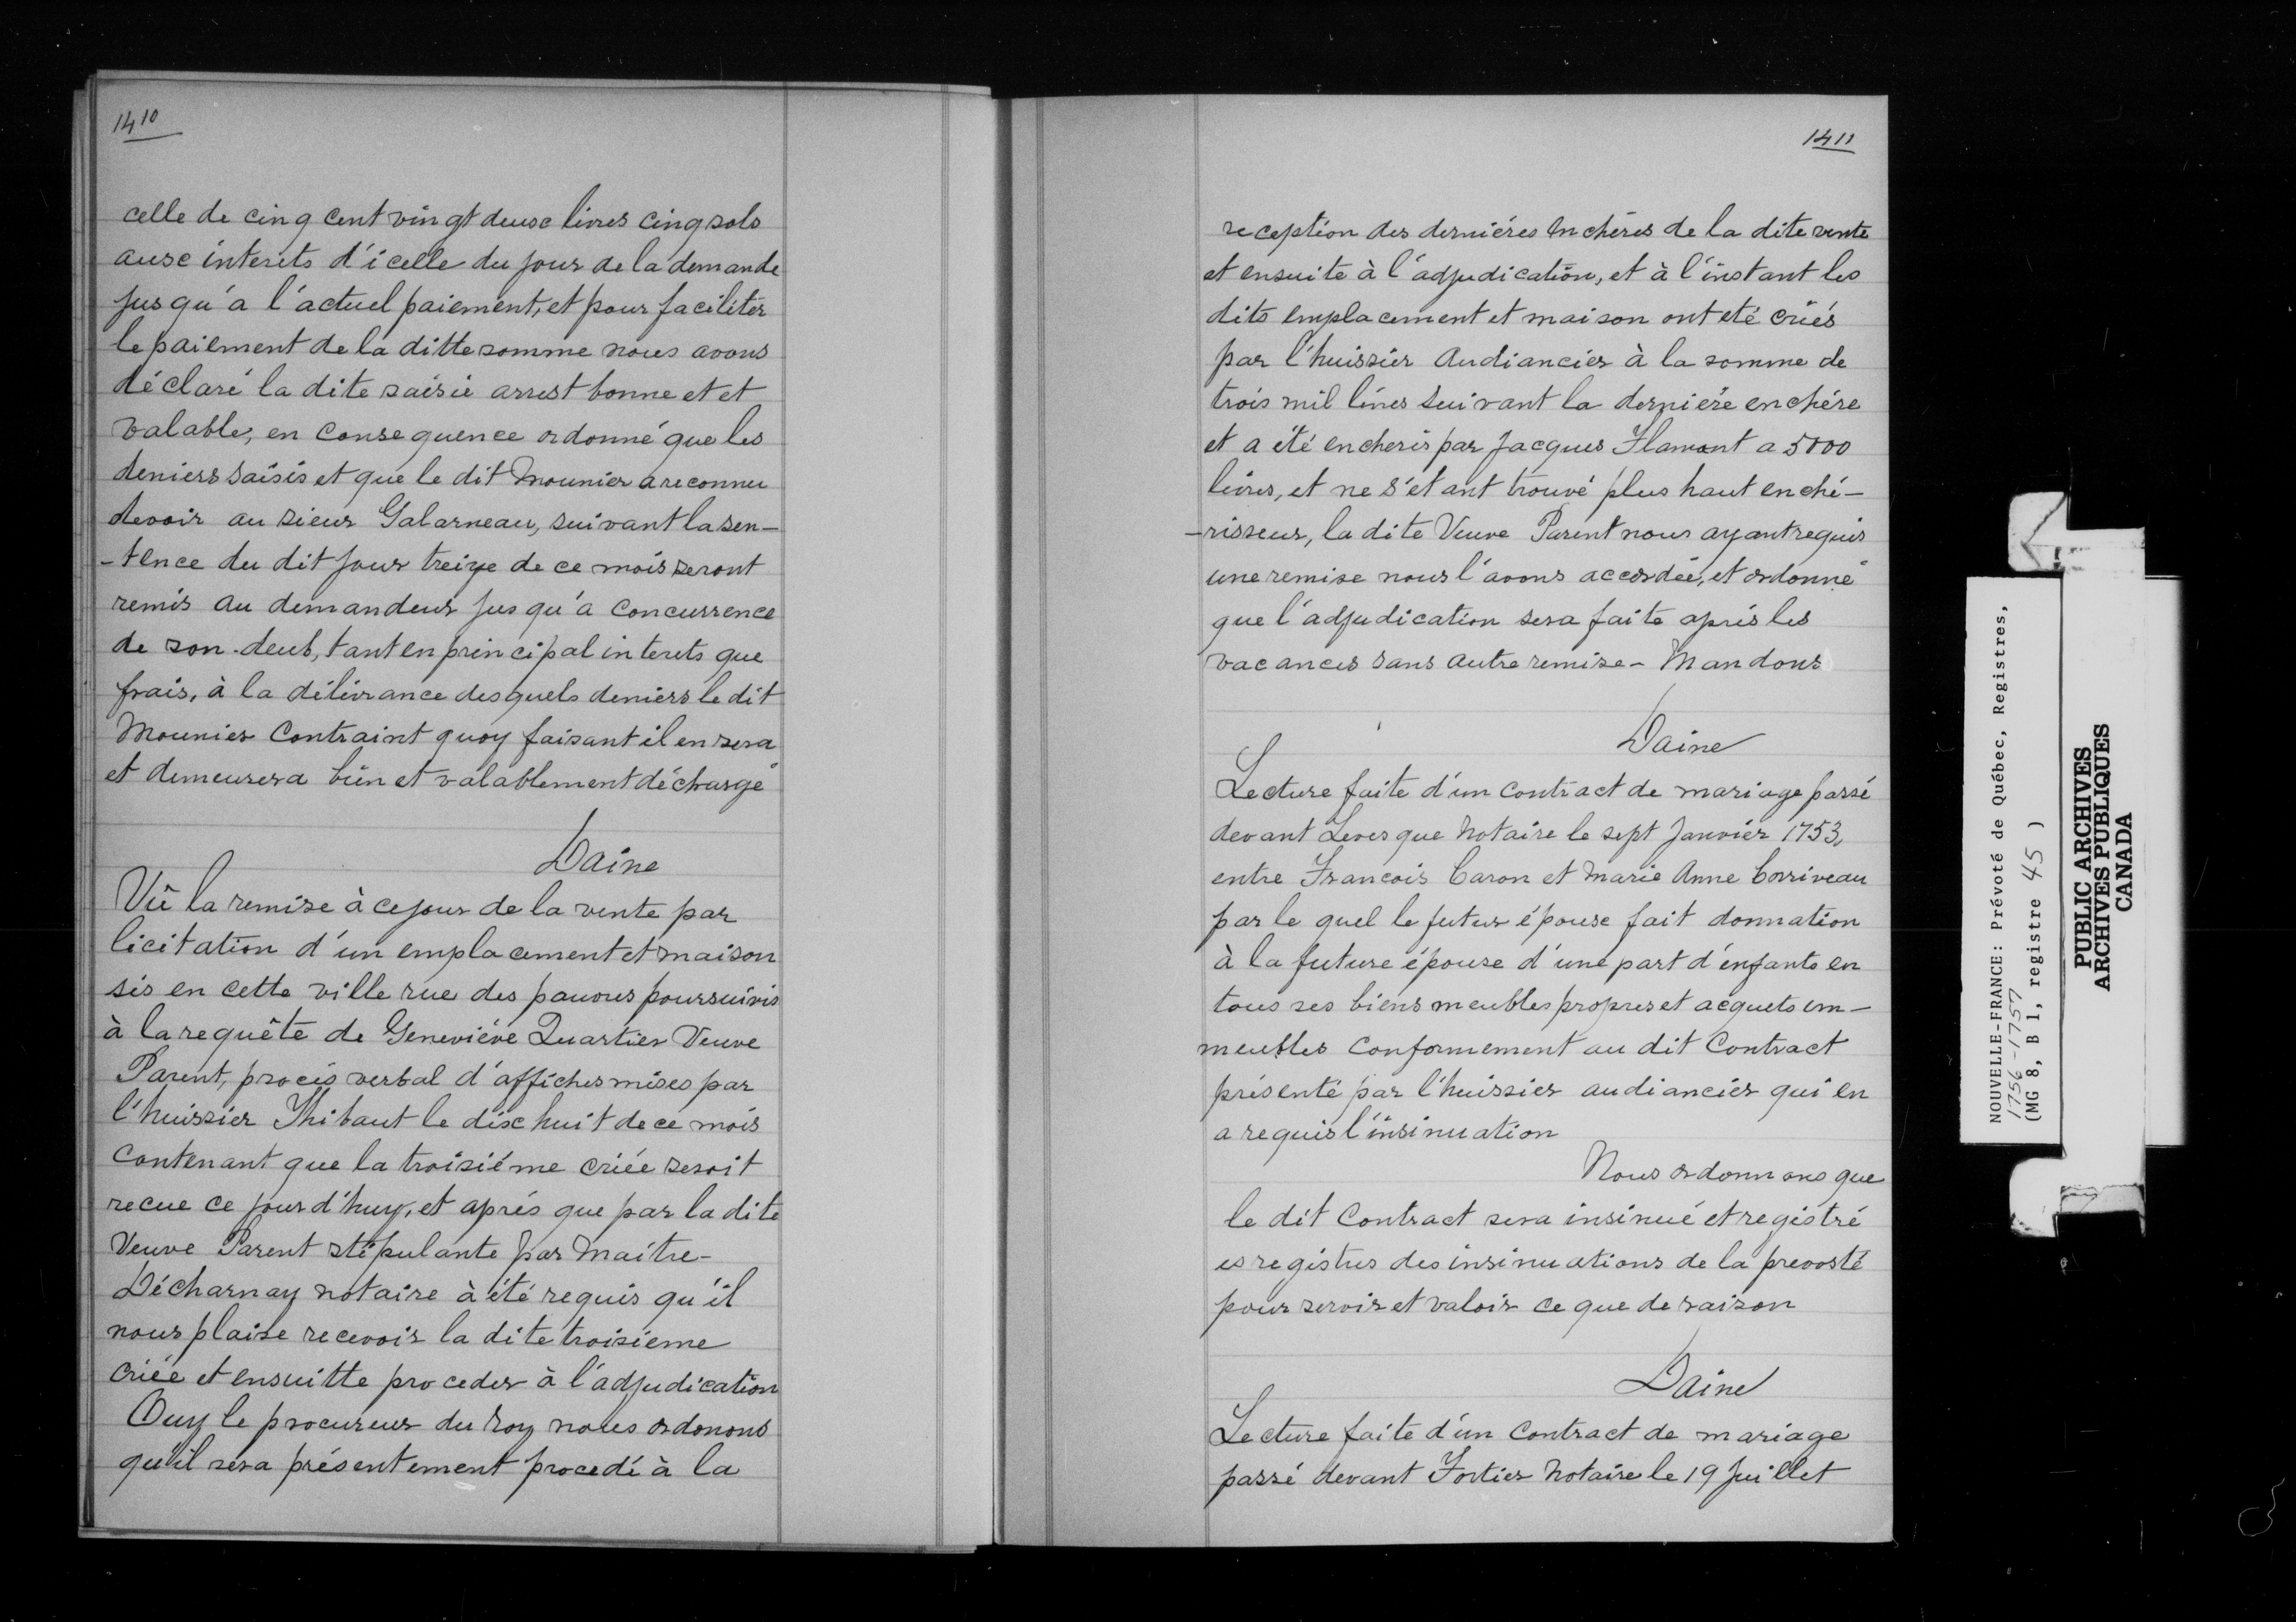 1410
celle de cinq cent vingt deuxe livres cinq sols
auxe interets d'icelle du jour de la demande
jusqu'a l'actuel paiement, et pour faciliter
le paiement de la ditte somme nous avons
déclaré la dite saisie arrest bonne et et
valable, en consequence ordonné que les
deniers saisis et que le dit Mounier a reconnu
devoir au sieur Galarneau, suivant la sen-
-tence du dit jour treize de ce mois seront
remis au demandeur jusqu'a concurrence
de son deub, tant en principal interets que
frais, à la délivrance desquels deniers le dit
Mounier contraint quoy faisant il en sera
et demeurera bien et valablement déchargé
Daine
Vû la remise à ce jour de la vente par
licitation d'un emplacement et maison
sis en cette ville rue des pauvres poursuivis
à la requête de Geneviéve Quartier Veuve
Parent, procés verbal d'affiches mises par
l'huissier Thibaut le dixhuit de ce mois
contenant que la troisiéme criée seroit
recue ce jour d'huy, et aprés que par la dite
Veuve Parent stipulante par Maitre-
Décharnay notaire à été requis qu'il
nous plaise recevoir la dite troisieme
criée et ensuitte proceder à l'adjudication
Ouy le procureur du roy nous ordonons
qu'il sera présentement procedé à la
1411
reception des derniéres encheres de la dite vente
et ensuite à l'adjudication, et à l'instant les
dits emplacement et maison ont eté criés
par l'huissier Audiancier à la somme de
trois mil livres suivant la derniére enchére
et a été encheris par Jacques Flamant a 5000
livres, et ne s'etant trouvé plus haut enché-
-risseur, la dite Veuve Parent nous ayant requis
une remise nous l'avons accordée, et ordonné
que l'adjudication sera faite aprés les
vacances sans autre remise - Mandons
Daine
Lecture faite d'un contract de mariage passé
devant Levesque Notaire le sept Janvier 1753,
entre Francois Caron et Marie Anne Corriveau
par le quel le futur épouse fait donnation
à la future épouse d'une part d'enfants en
tous ses biens meubles propres et acquets im-
meubles conformement au dit Contract
présenté par l'huissier audiancier qui en
a requis l'insinuation
Nous ordonnons que
le dit Contract sera insinué et registré
es registres des insinuations de la prevosté
pour servir et valoir ce que de raison
Daine
Lecture faite d'un Contract de mariage
passé devant Fortier Notaire le 19 Juillet
NOUVELLE-FRANCE: Prévoté de Québec, Registres,
1756-1757
(MG 8, B 1, registre 45 )
PUBLIC ARCHIVES
ARCHIVES PUBLIQUES
CANADA